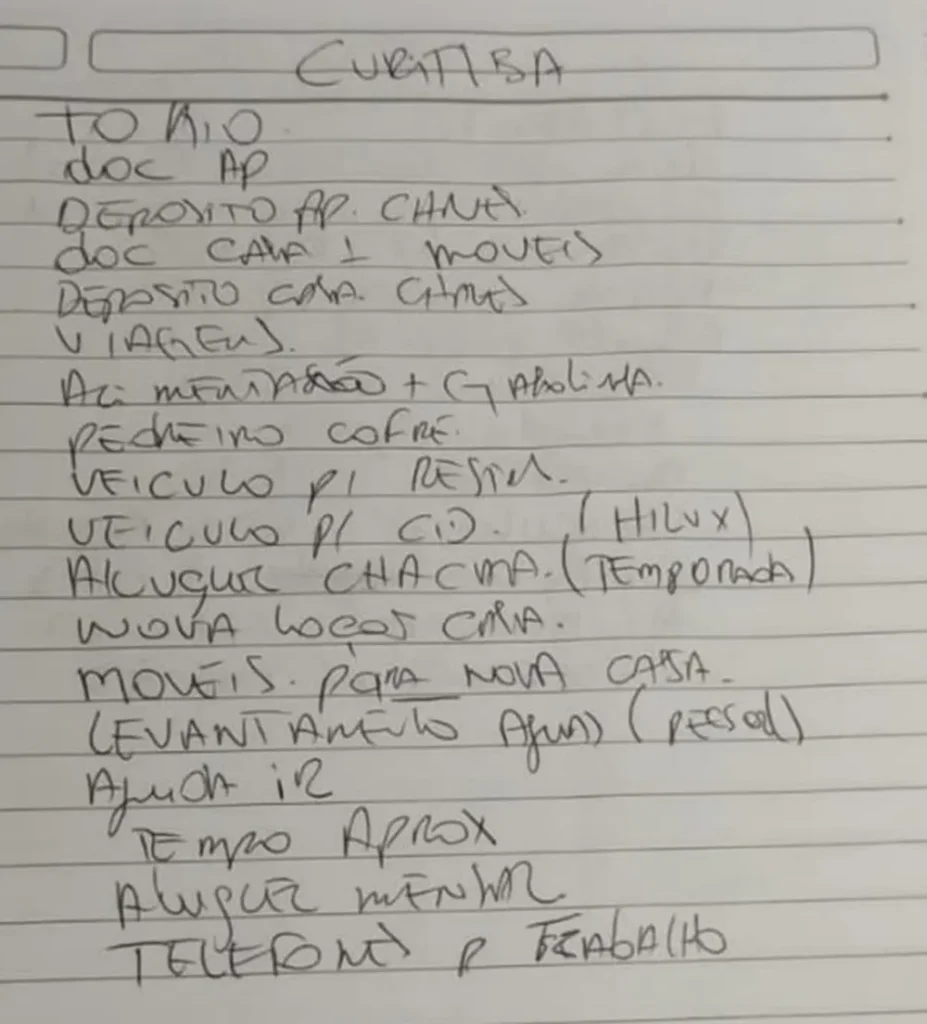 CURITIBA
TOKIO
doc AP
DEPOSITO AP. CHAVES
doc CASA 1 MOVEIS
DEPOSITO CASA. CHAVES
VIAGENS.
ALiMENTAÇÃO + GASOLINA.
PEDREIRO COFRE.
VEICULO P/
VEICULO P/ (HILUX)
ALUGUEL CHACARA. (TEMPORADA)
NOVA CASA.
MOVEIS. para NOVA CASA.
LEVANTAMENTO (PESSOAL)
AJUDA
TEMPO APROX
ALUGUEL MENSAL
TELEFONES P TRABALHO